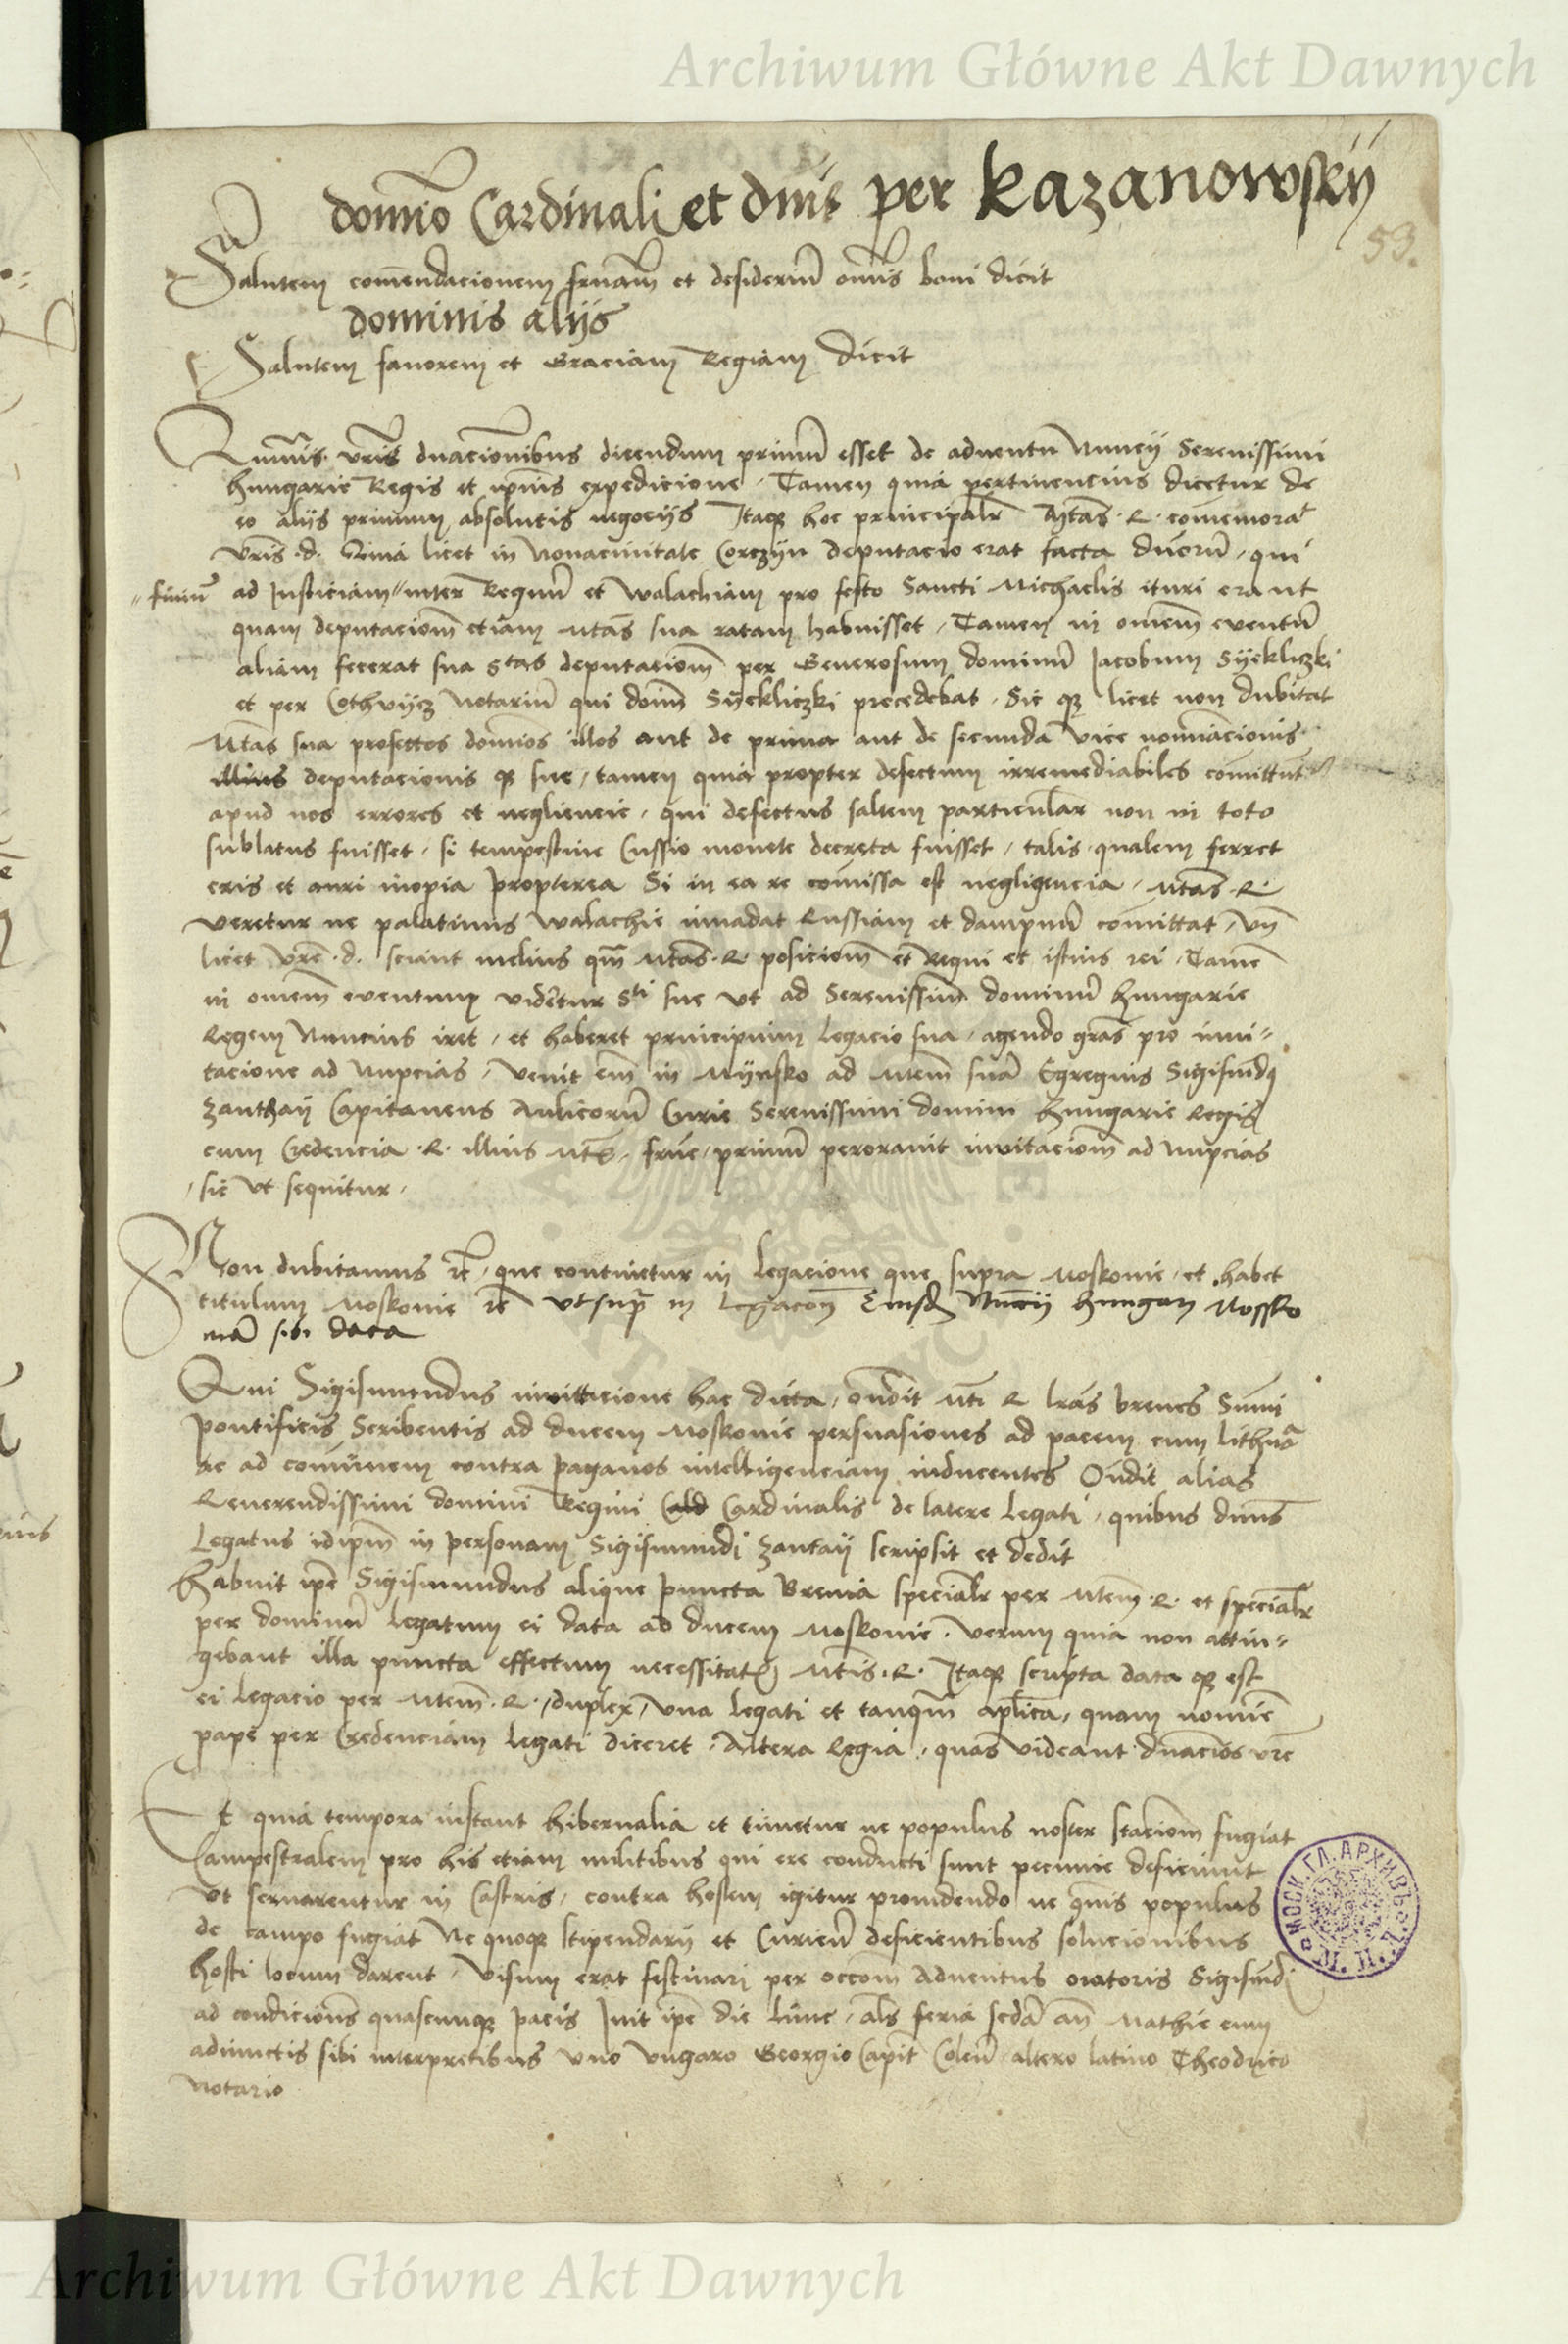 Archiwum Główne Akt Dawnych
domio Cardinali et dnis per Kazanowskij
53.
Salutem comendacionem frnam et desiderium omnis boni dicit
dominis alijs
Salutem favorem et Graciam Regiam dicit
Quamvis vris dnacionibus dicendum primum esset de adventu Nuncij Serenissimi
hungarie Regis et ipius expedicione, Tamen quia pertinencius dicetur de
eo alijs primum absolutis negocijs Itaque hoc principalr Mtas R. comemorat
vris d. Quia licet in Novacivitate Corczijn deputacio erat facta duorum, qui
finium ad Iusticiam inter Regnum et Walachiam pro festo Sancti Michaelis ituri erant
quam deputaciom etiam Mtas sua ratam habuisset, Tamen in omem eventum
aliam fecerat sua Stas deputaciom per Generosum dominum Jacobum Syekliczki
et per Cothvijcz Notarium qui doim Sijekliczki precedebat, Sic que licet non dubitat
Mtas sua profectos domios illos aut de prima aut de secunda vice nominacionis
illius deputacionis que sue, tamen quia propter defectum irremediabiles comittunt
apud nos errores et negliencie, qui defectus saltem particular non in toto
sublatus fuisset, si tempestive Cussio monete decreta fuisset, talis qualem ferret
eris et auri inopia Propterea Si in ea re comissa est negligencia, Mtas R.
veretur ne palatinus Walachie invadat Russiam et dampnum comittat, Vn
licet vre d. sciant melius qm Mtas R. posiciom et Regni et istius rei, Tame
in omem eventum videtur Sti sue ut ad Serenissimum dominum hungarie
Regem Nuncius iret, et haberet principium legacio sua, agendo gras pro invi-
tacione ad Nupcias, Venit em in Mijnsko ad Mtem sua Egregius Sigismdus
Zanthaij Capitaneus Aulicorum Curie Serenissimi domini hungarie Regis
cum Credencia R. illius Mtis frne, primum peroravit invitaciom ad Nupcias
sic ut sequitur
Non dubitamus etc, que continetur in legacione que supra Moskovie, et habet
titulum Moskovie etc ut supra in legacom Eiusd Nuncij hungari Mossko
viam sibi data
Qui Sigismundus invittacione hac dicta, ondit Mti R lras breves Summi
pontificis Scribentis ad ducem Moskovie persuasiones ad pacem cum lithua
ac ad comunem contra paganos intelligenciam inducentes Ondit alias
Reverendissimi domini Regini Cald Cardinalis de latere Legati, quibus dnus
Legatus idipm in personam Sigismundi Zantaij scripsit et dedit
Habuit ipe Sigismundus alique puncta Brevia specialr per Mtem R. et specialr
per dominum legatum ei data ad ducem Moskovie. Verum quia non attin-
gebant illa puncta effectum necessitatis Mtis R. Itaque scripta data que est
ei legacio per Mtem R. duplex, Una legati et tanqm aplica, quam nomie
pape per Credenciam legati diceret, Altera Regia, quas videant dnacios vre
Et quia tempora instant hibernalia et timetur ne populus noster staciom fugiat
Campestralem pro his etiam militibus qui ere conducti sunt pecunie deficiunt
ut servarentur in Castris, contra hostem igitur providendo ne populus
de campo fugiat Ne quoque stipendarij et Curien deficientibus solucionibus
hosti locum darent, Visum erat festinari per occom Adventus oratoris Sigismdi
ad condicions quascunque pacis Ivit ipe die lune, als feria scda an Mathie cum
adiunctis sibi interpretibus uno Ungaro Georgio Capit Colen, altero latino Theodrico
Notario
МОСК. ГЛ. АРХИВЪ
М. И. Д.
Archiwum Główne Akt Dawnych